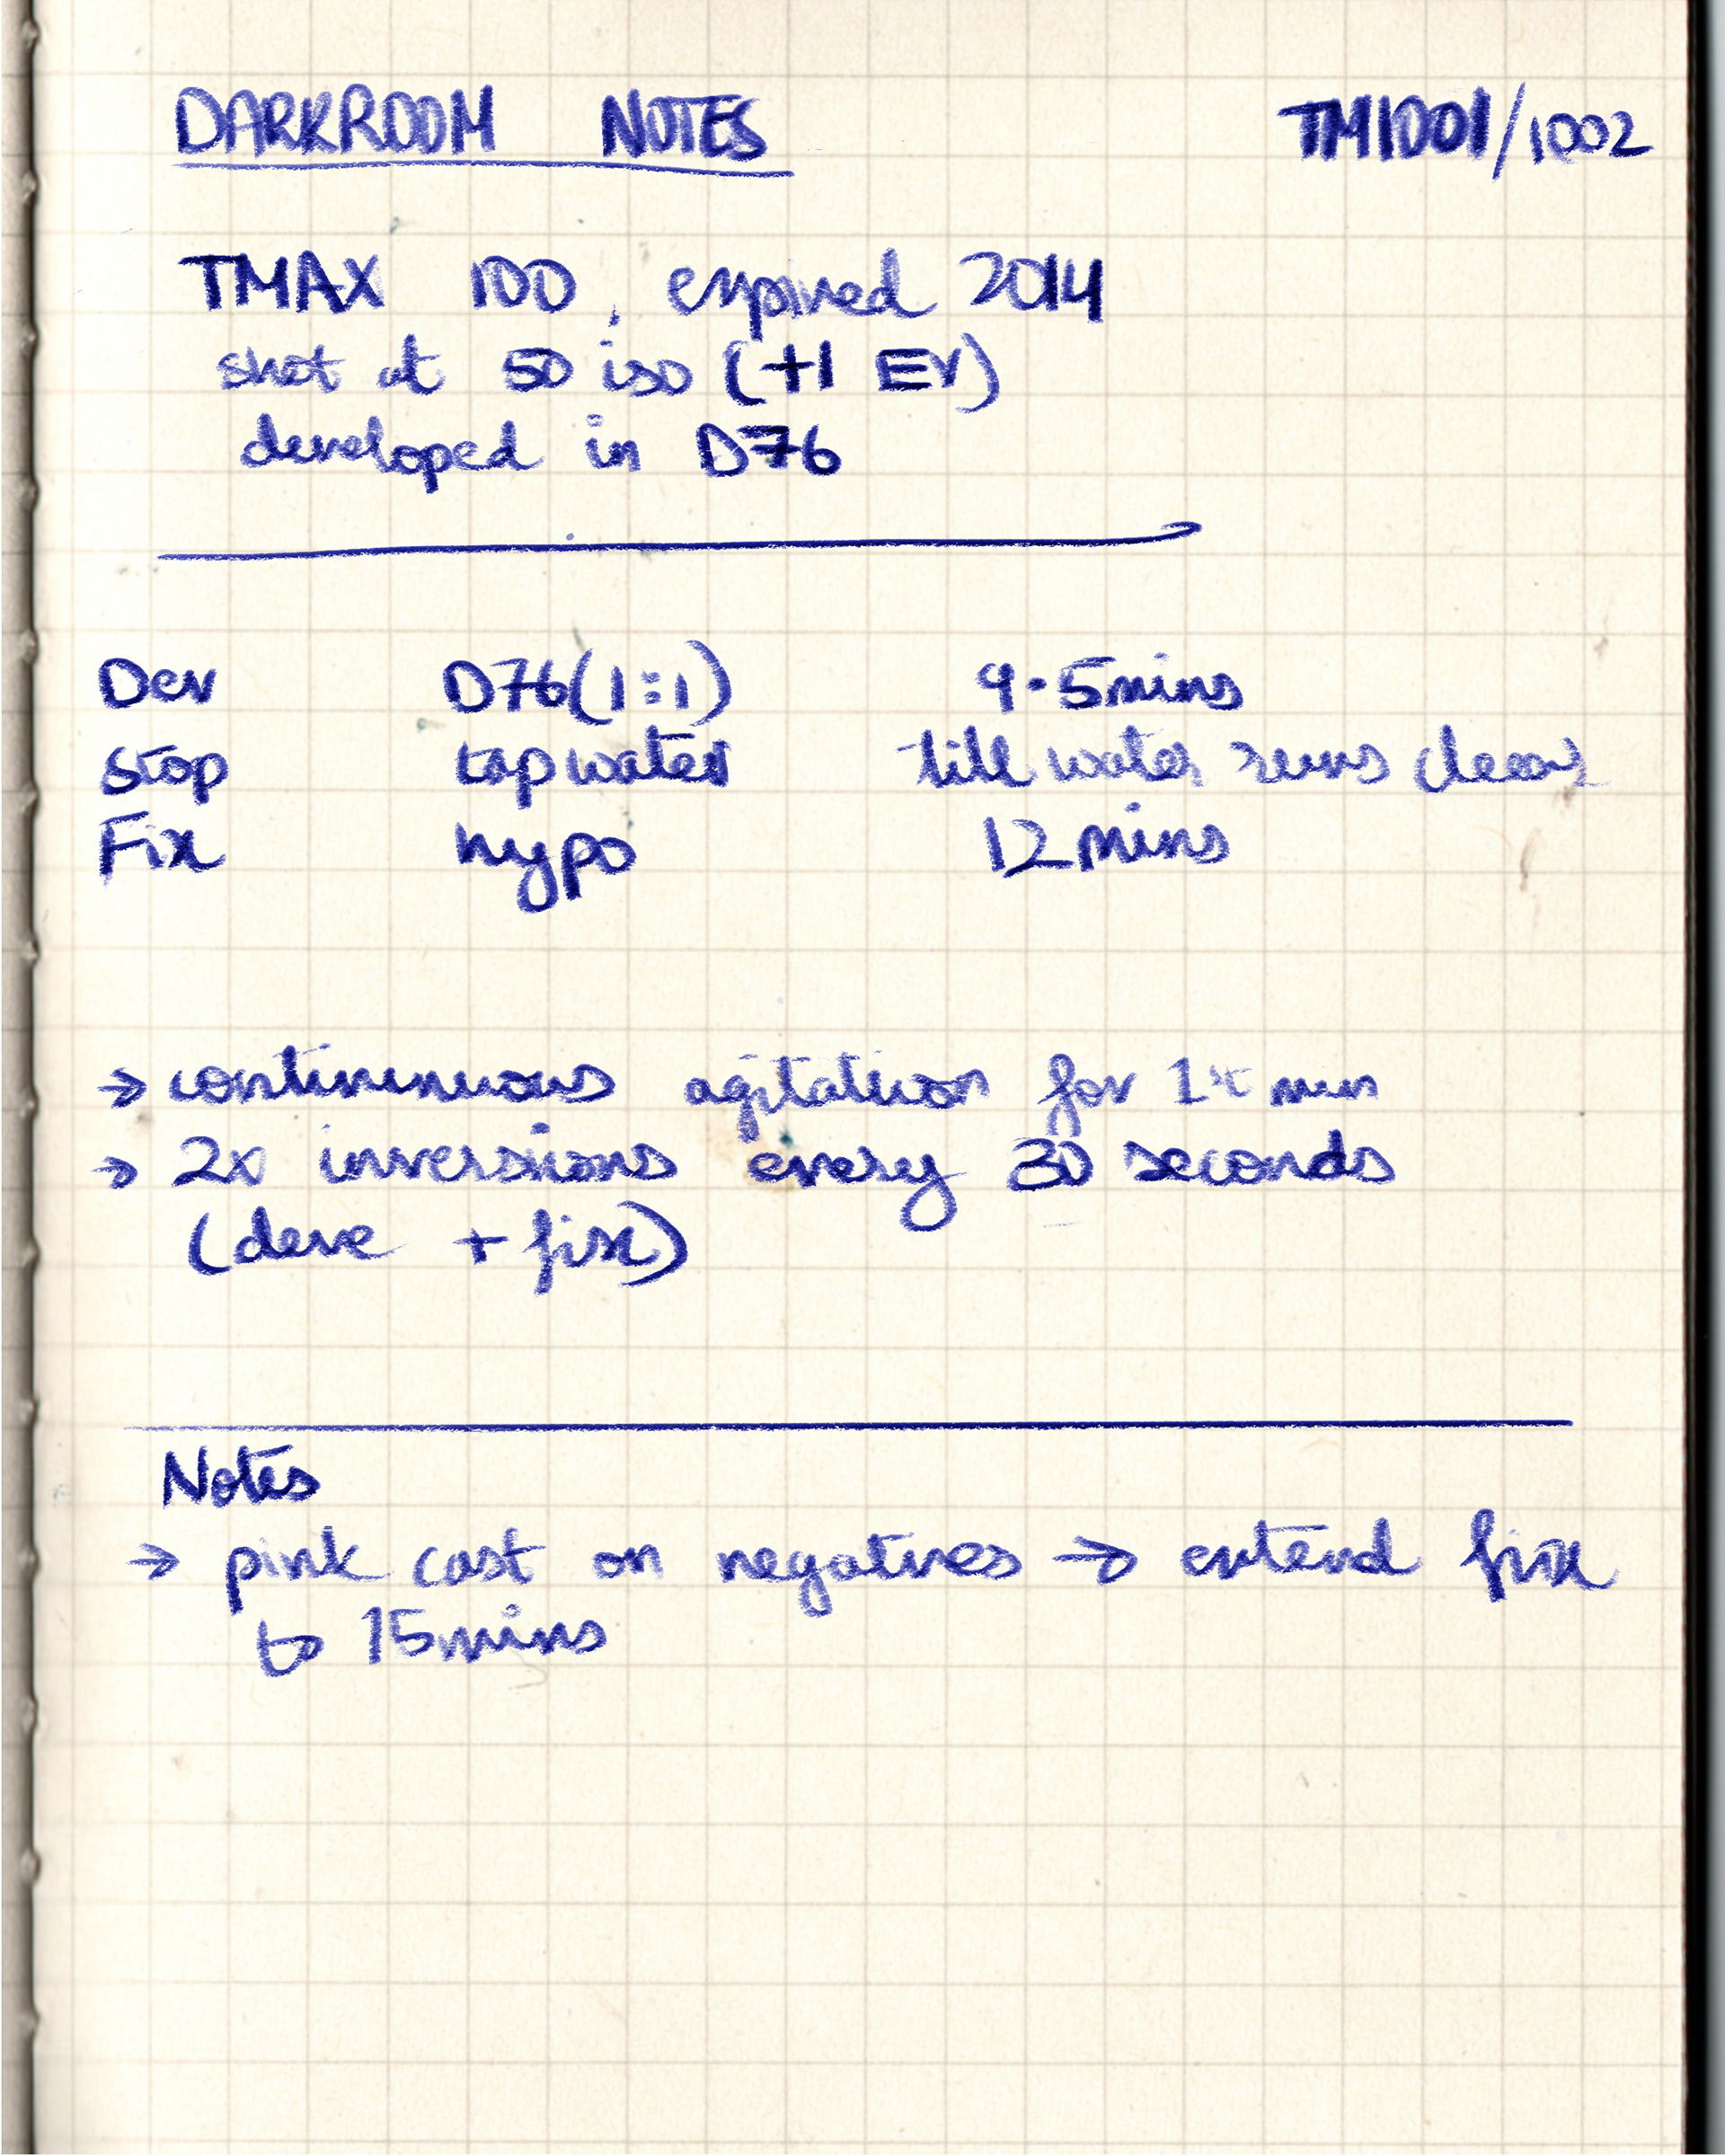 DARKROOM NOTES TM1001/1002
TMAX 100, expired 2014
shot at 50 iso (+1 EV)
developed in D76
Dev D76(1:1) 9.5mins
Stop tap water till water runs clear
Fix hypo 12 mins
→ continenuous agitation for 1 min
→ 2x inversions every 30 seconds
(deve + fix)
Notes
→ pink cast on negatives → extend fix
to 15mins